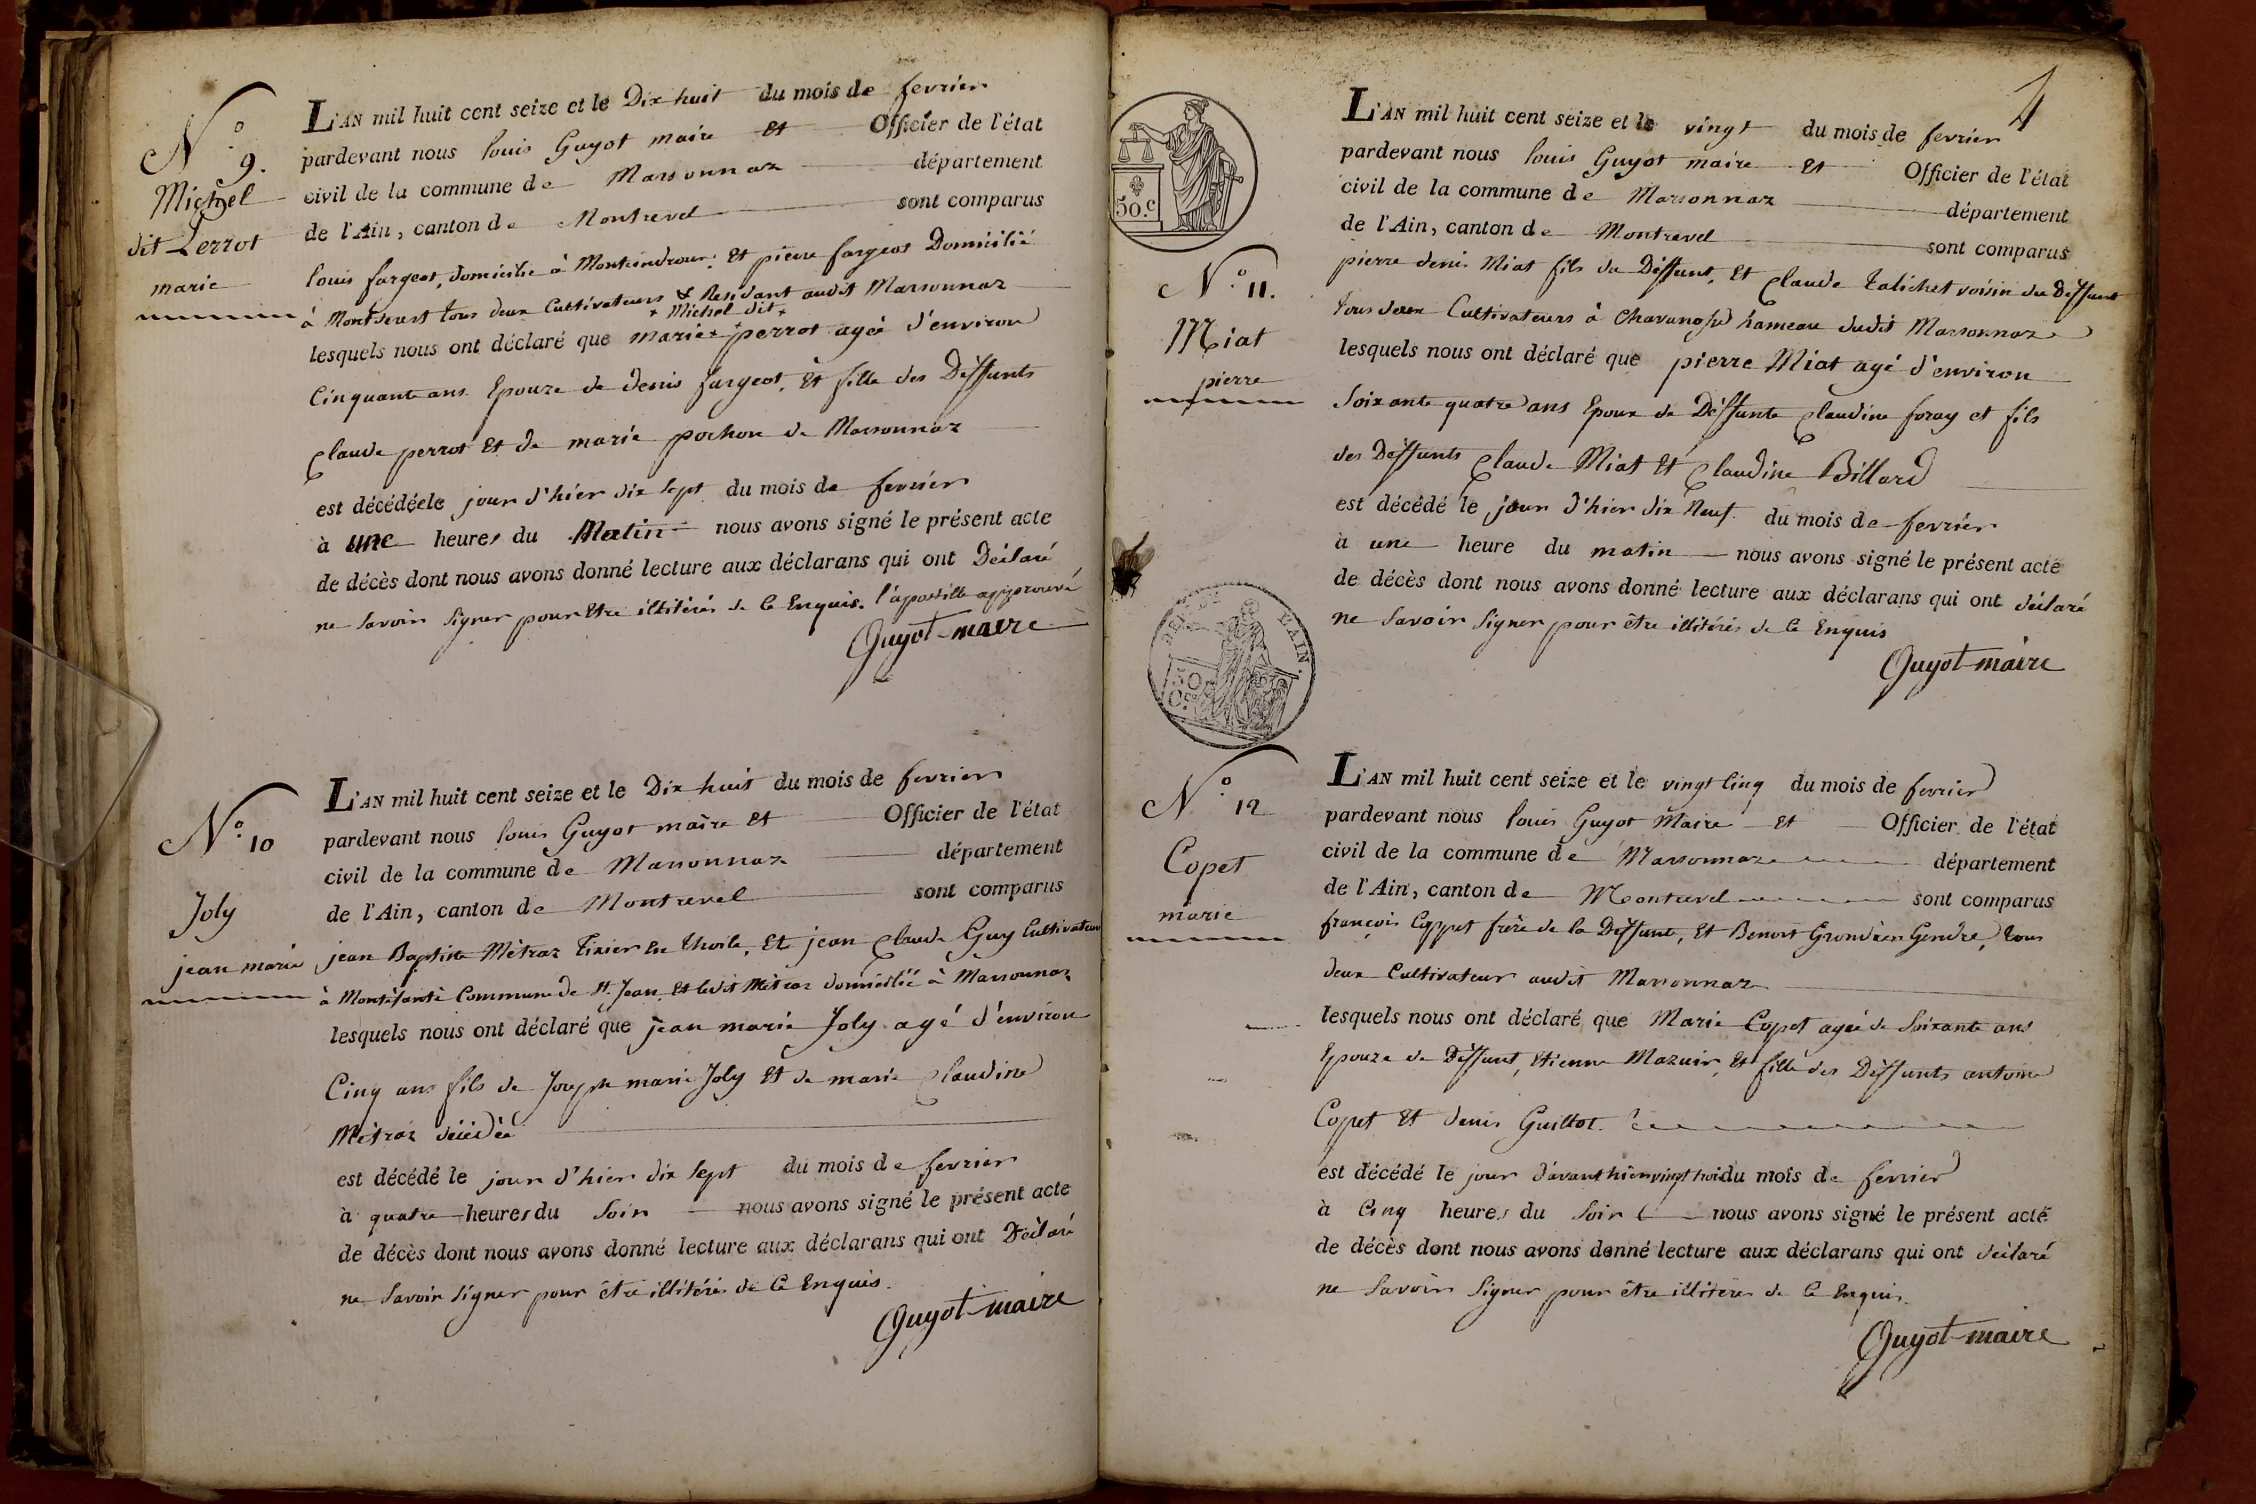 N.° 9.
Michel
dit Perrot
marie
L'AN mil huit cent seize et le Dix huit du mois de fevrier
pardevant nous louis Guyot maire Et Officier de l'état
civil de la commune de Marsonnaz département
de l'Ain, canton de Montrevel sont comparus
louis fargeot, domicilié à Et pierre fargeot Domicilié
à tous deux Cultivateurs & Residant audit Marsonnaz
+ Michel dit +
lesquels nous ont déclaré que marie + perrot agée d'environ
Cinquante ans Epouze de denis fargeot, Et fille des Deffunts
Claude perrot Et de marie pochon de Marsonnaz
est décédée le jour d'hier dix sept du mois de fevrier
à une heures du Matin nous avons signé le présent acte
de décès dont nous avons donné lecture aux déclarans qui ont Déclaré
ne savoir signer pour Etre illitérés de Ce Enquis. l'apostille approuvé
Guyot maire
N.° 10
Joly
jean marie
L'AN mil huit cent seize et le Dix huit du mois de fevrier
pardevant nous louis Guyot maire Et Officier de l'état
civil de la commune de Marsonnaz département
de l'Ain, canton de Montrevel sont comparus
jean Baptiste Métraz Tixier En thoile, Et jean Claude Guy Cultivateur
à Commune de St. Jean, Et ledit Métraz domicilié à Marsonnaz
lesquels nous ont déclaré que jean marie Joly agé d'environ
Cinq ans fils de Joseph marie Joly Et de marie Claudine
Métraz décédée
est décédé le jour d'hier dix sept du mois de fevrier
à quatre heures du soir nous avons signé le présent acte
de décès dont nous avons donné lecture aux déclarans qui ont Déclaré
ne savoir signer pour être illitérés de Ce Enquis.
Guyot maire
4
50.C
N.° 11.
Miat
pierre
L'AN mil huit cent seize et le vingt du mois de fevrier
pardevant nous louis Guyot maire Et Officier de l'état
civil de la commune de Marsonnaz département
de l'Ain, canton de Montrevel sont comparus
pierre denis Miat fils du Deffunt, Et Claude Talichet voisin du Deffunt
tous deux Cultivateurs à hameau dudit Marsonnaz
lesquels nous ont déclaré que pierre Miat agé d'environ
Soixante quatre ans Epoux de Deffunte Claudine foray et fils
des Deffunts Claude Miat Et Claudine Billard
est décédé le jour d'hier dix Neuf du mois de fevrier
à une heure du matin nous avons signé le présent acte
de décès dont nous avons donné lecture aux déclarans qui ont déclaré
ne savoir signer pour être illitérés de Ce Enquis
Guyot maire
L'AIN.
50
C.
N.° 12
Copet
marie
L'AN mil huit cent seize et le vingt Cinq du mois de fevrier
pardevant nous louis Guyot Maire Et Officier de l'état
civil de la commune de Marsonnaz département
de l'Ain, canton de Montrevel sont comparus
françois Coppet frère de la Deffunte, Et Benoit Gendre, tous
deux Cultivateur audit Marsonnaz
lesquels nous ont déclaré que Marie Copet agée de Soixante ans
Epouze de Deffunt, Etienne Mazuir, Et fille des Deffunts antoine
Copet Et denis Guillot.
est décédé le jour d'avant hier vingt trois du mois de fevrier
à Cinq heures du soir nous avons signé le présent acte
de décès dont nous avons donné lecture aux déclarans qui ont déclaré
ne savoir signer pour être illitérés de Ce Enquis.
Guyot maire